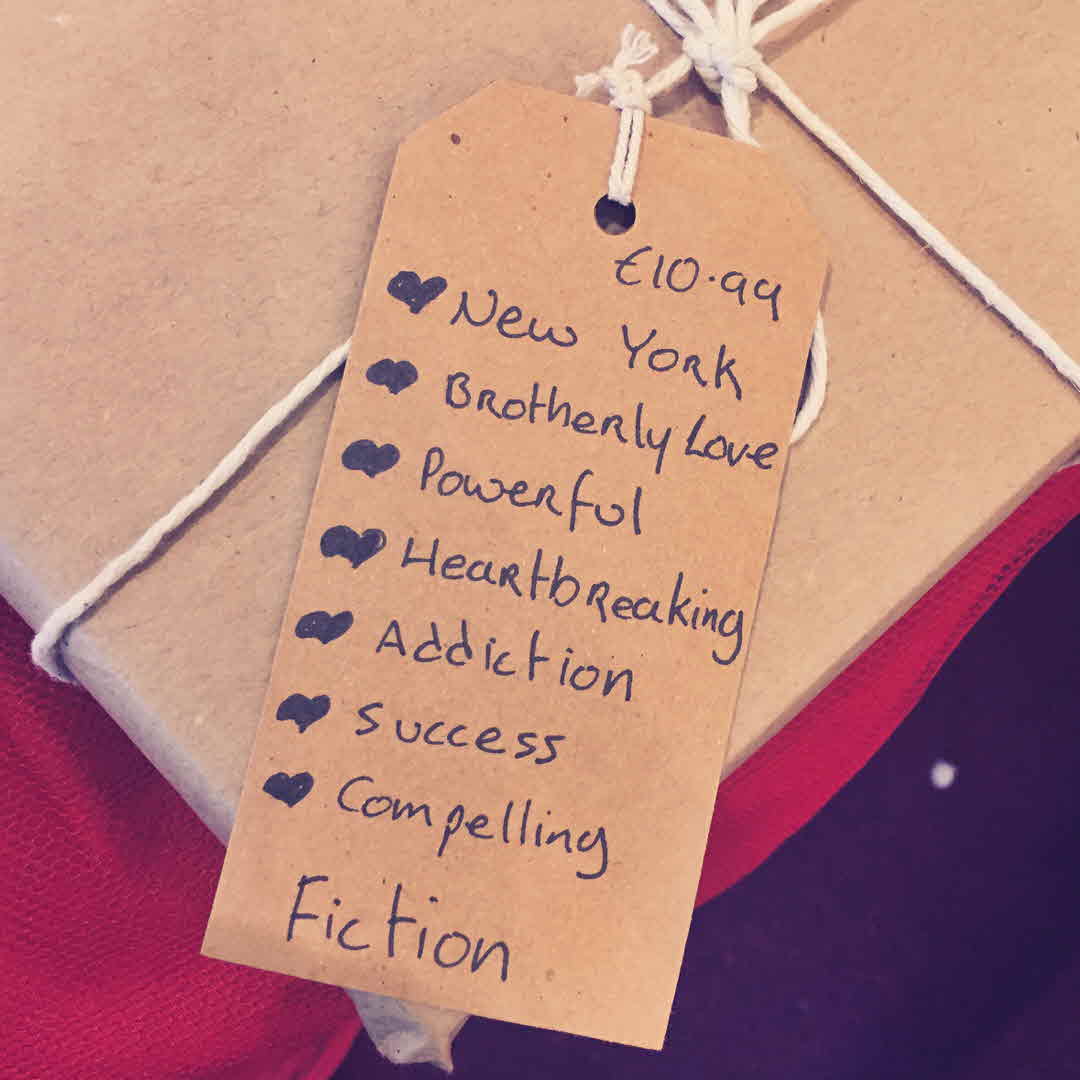 £10.99
New York
Brotherly Love
Powerful
Heartbreaking
Addiction
Success
Compelling
Fiction